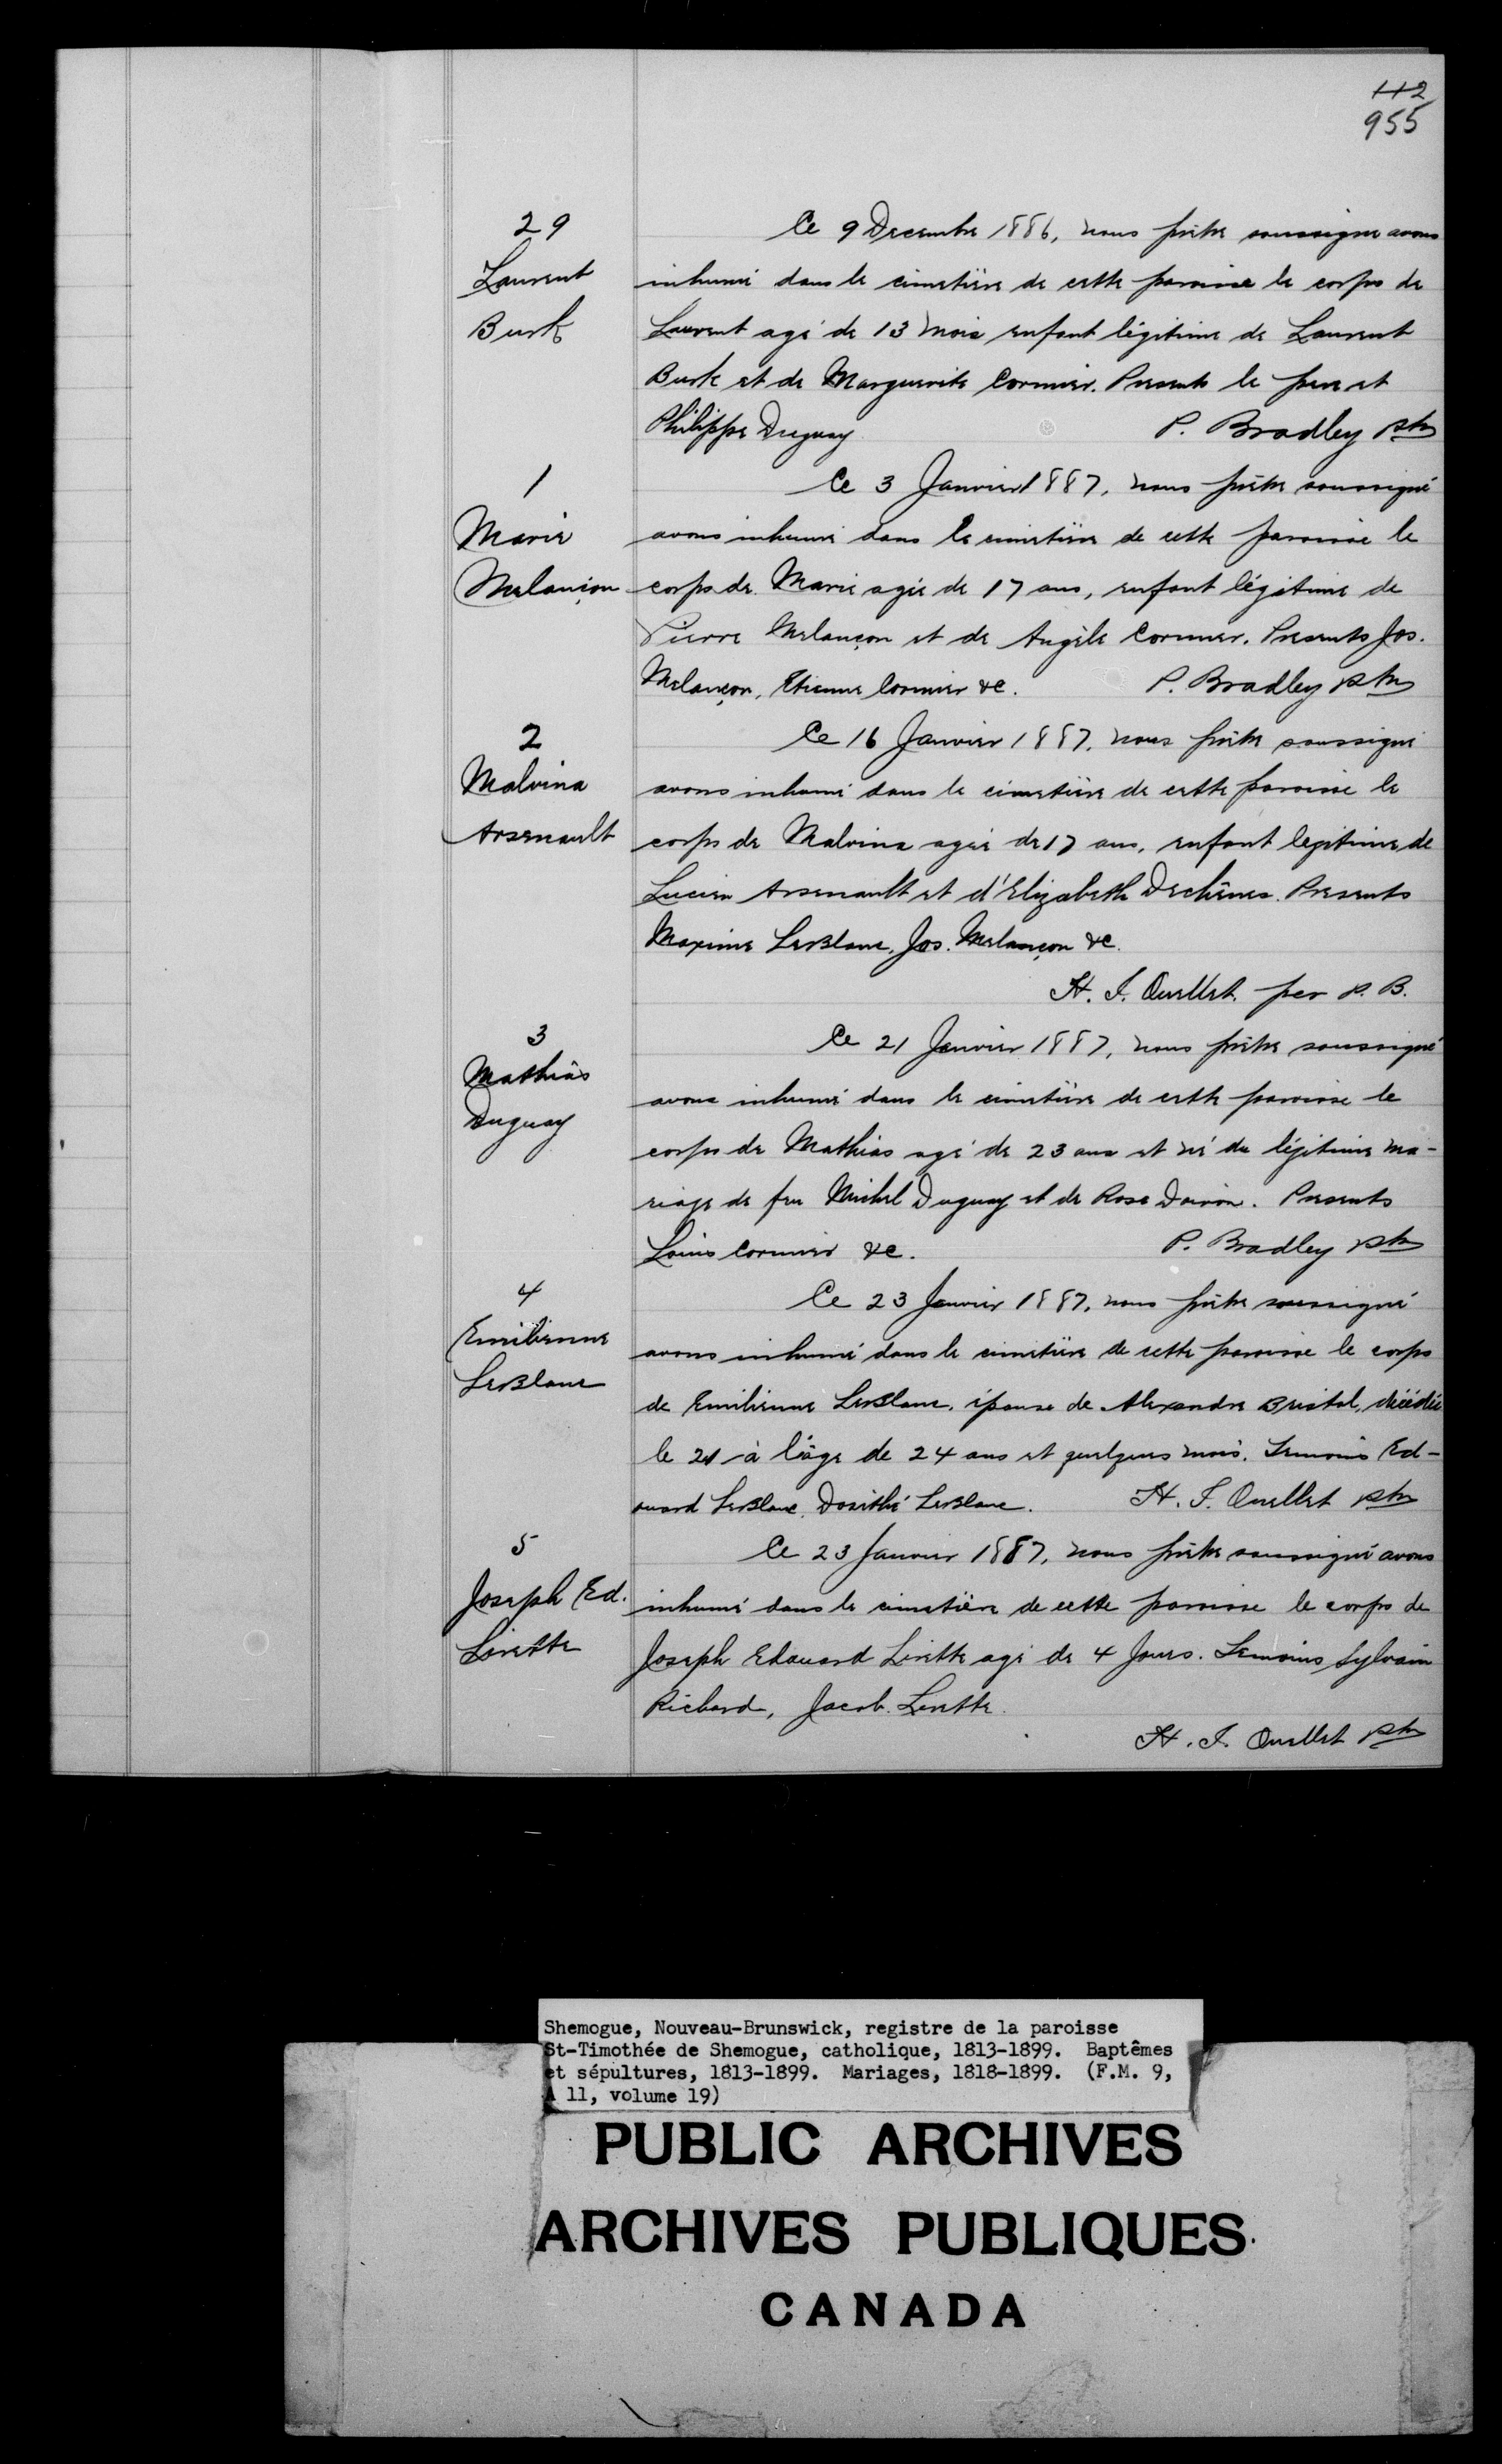 112
955
29
Laurent
Burk
Ce 9 Decembre 1886, nous prêtre soussigné avons
inhumé dans le cimetière de cette paroisse le corps de
Laurent agé de 13 mois enfant légitime de Laurent
Burk et de Marguerite Cormier. Presents le pere et
Philippe Duguay P. Bradley ptre
1
Marie
Melançon
Ce 3 Janvier 1887, nous prêtre soussigné
avons inhumé dans le cimetière de cette paroisse le
corps de Marie agée de 17 ans, enfant légitime de
Pierre Melançon et de Angèle Cormier. Presents Jos.
Melançon, Etienne Cormier &c. P. Bradley ptre
2
Malvina
Arsenault
Ce 16 Janvier 1887, nous prêtre soussigné
avons inhumé dans le cimetière de cette paroisse le
corps de Malvina agée de 17 ans, enfant legitime de
Lucien Arsenault et d'Elizabeth Dechênes. Presents
Maxime LeBlanc, Jos. Melançon &c.
H. I. Ouellet per P. B.
3
Mathias
Duguay
Ce 21 Janvier 1887, nous prêtre soussigné
avons inhumé dans le cimetière de cette paroisse le
corps de Mathias agé de 23 ans et né du légitime ma-
riage de feu Michel Duguay et de Rose Doiron. Presents
Louis Cormier &c. P. Bradley ptre
4
Emilienne
LeBlanc
Ce 23 Janvier 1887, nous prêtre soussigné
avons inhumé dans le cimetière de cette paroisse le corps
de Emilienne LeBlanc, épouse de Alexandre Bristol, décédée
le 21 à l'âge de 24 ans et quelques mois. Temoins Ed-
ouard LeBlanc, Dosithé LeBlanc. H. I. Ouellet ptre
5
Joseph Ed.
Lirette
Ce 23 Janvier 1887, nous prêtre soussigné avons
inhumé dans le cimetière de cette paroisse le corps de
Joseph Edouard Lirette agé de 4 Jours. Temoins Sylvain
Richard, Jacob Lirette.
H. I. Ouellet ptre
Shemogue, Nouveau-Brunswick, registre de la paroisse
St-Timothée de Shemogue, catholique, 1813-1899. Baptêmes
et sépultures, 1813-1899. Mariages, 1818-1899. (F.M. 9,
A 11, volume 19)
PUBLIC ARCHIVES
ARCHIVES PUBLIQUES
CANADA